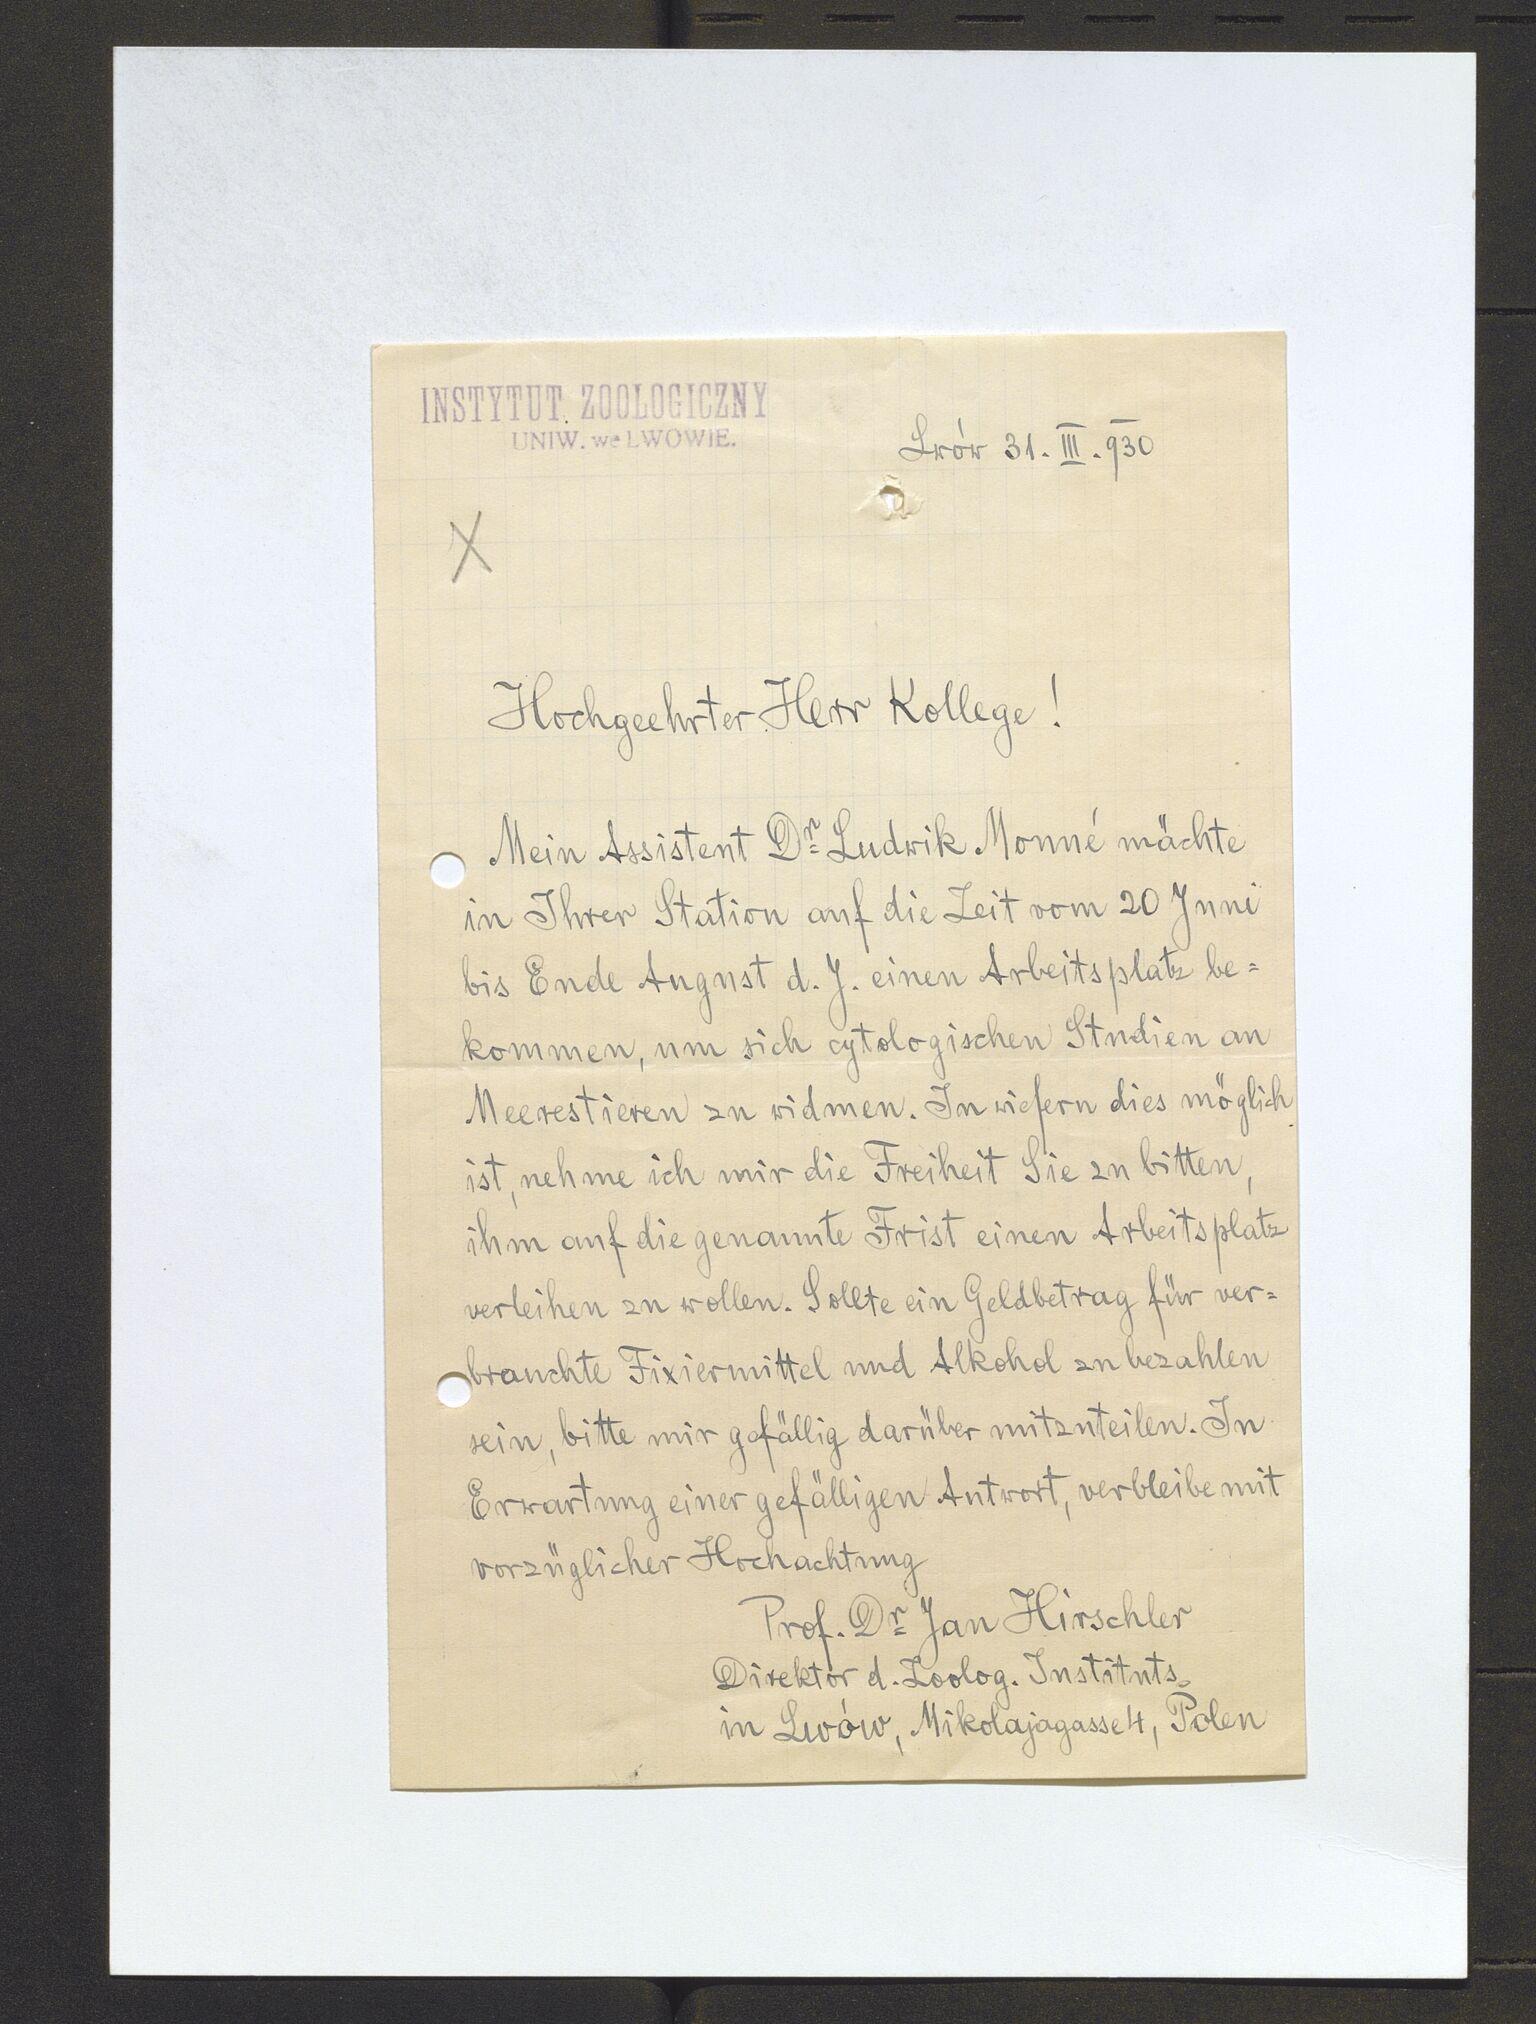 INSTYTUT ZOOLOGICZNY
UNIW. we LWOWIE.
Lwów 31. III. 930
X
Hochgeehrter Herr Kollege!
Mein Assistent Dr Ludwik Monné mächte
in Ihrer Station auf die Zeit vom 20 Juni
bis Ende August d. J. einen Arbeitsplatz be=
kommen, um sich cytologischen Studien an
Meerestieren zu widmen. In wiefern dies möglich
ist, nehme ich mir die Freiheit Sie zu bitten,
ihm auf die genannte Frist einen Arbeitsplatz
verleihen zu wollen. Sollte ein Geldbetrag für ver=
brauchte Fixiermittel und Alkohol zu bezahlen
sein, bitte mir gefällig darüber mitzuteilen. In
Erwartung einer gefälligen Antwort, verbleibe mit
vorzüglicher Hochachtung
Prof. Dr Jan Hirschler
Direktor d. Zoolog. Instituts
in Lwów, Mikolajagasse 4, Polen